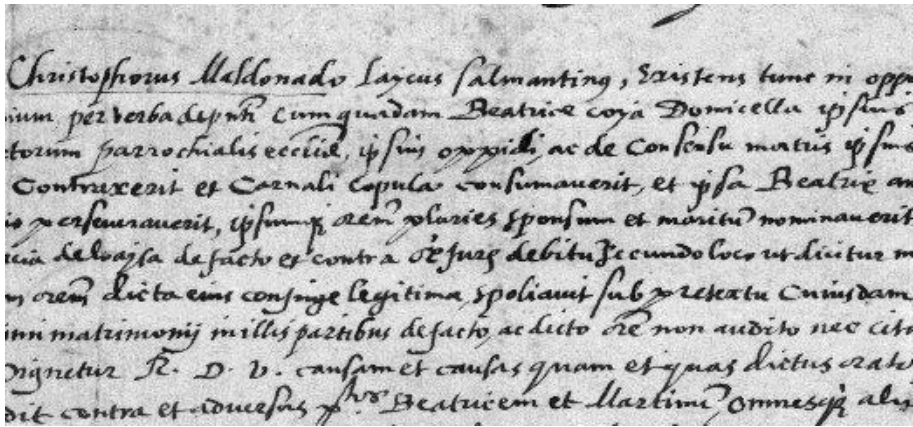 Christophorus Maldonado laycus Salmantinꝰ, Existens tunc in oppi
nium per verba de pn̄ti cum quadam Beatrice coya Domicella ipsius
ctorum parrochialis eccliē, ipsius oppidi, ac de Consensu matris ipsius
Contraxerit et Carnali Copula consumaverit, et ipsa Beatrix an
perseveraverit, ipsumqꝫ orem̄ pluries sponsum et maritū nominaverit
cia de loaysa de facto et contra debitū secundo loco ut dicitur m
m orem̄ dicta eius coniuge legitima, spoliavit sub pretextu Cuiusdam
matrimonij in illis partibus de facto, ac dicto orē non audito nec cita
Dignetur R. D. V. causam et causas quam et quas dictus orato
dit contra et adversus Beatricem et Martinū omnesqꝫ alios